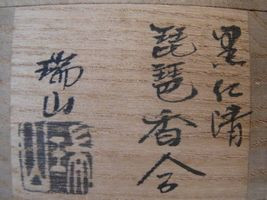 黒仁清
琵琶香合
瑞山